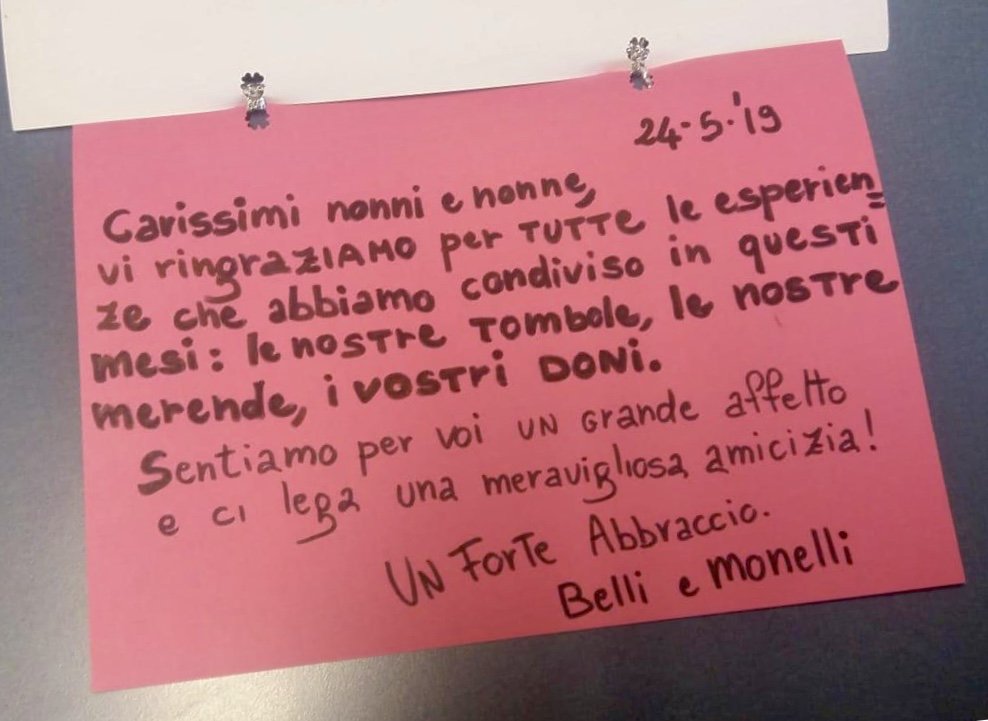 24-5-'19
Carissimi nonni e nonne,
vi ringraZIAMO per TUTTE le esperien=
ze che abbiamo condiviso in quesTi
mesi: le nosTre Tombole, le nosTre
merende, i vosTri DONi.
Sentiamo per voi UN Grande affetto
e ci lega una meravigliosa amicizia!
UN ForTe Abbraccio.
Belli e monelli